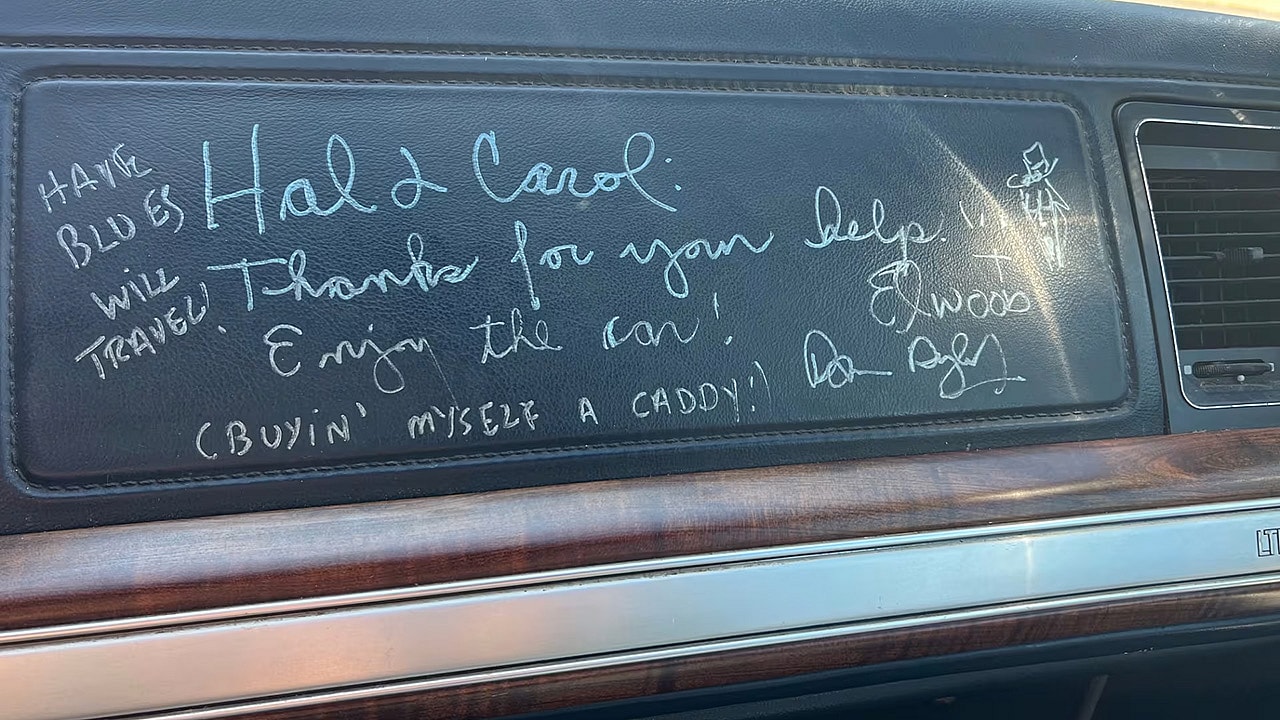 HAVE
BLUES
WILL
TRAVEL!
Hal & Carol:
Thanks for your help!!!
Enjoy the car!
(BUYIN' MYSELF A CADDY!)
+
Elwood
Dan Aykroyd
LT